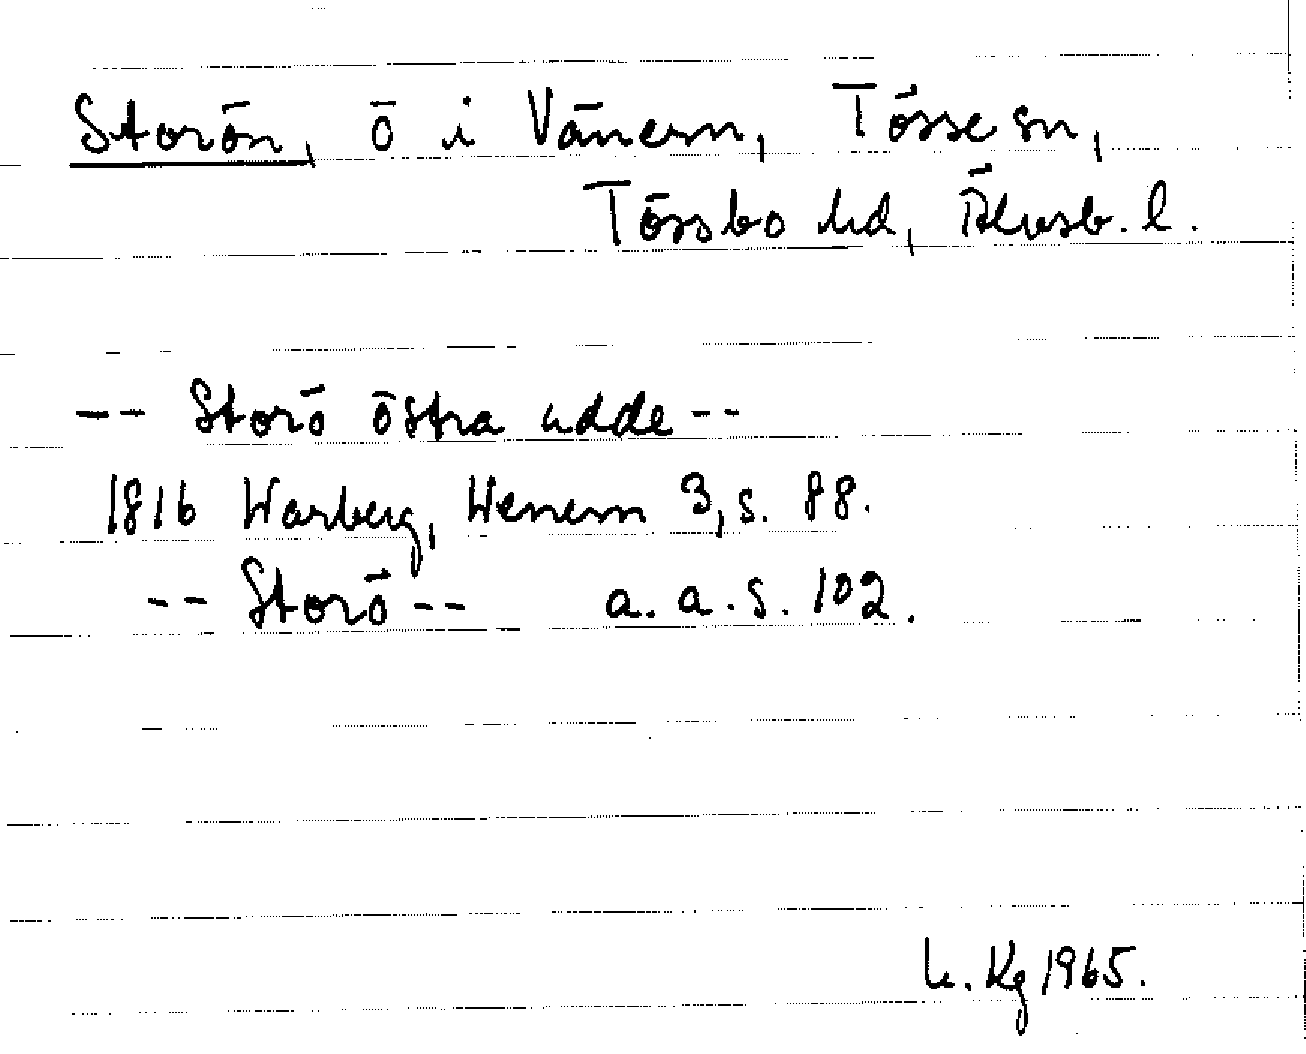 Storön, ö i Vänern, Tösse sn,
Tössbo hd, Älvsb. l.
-- Storö östra udde --
1816 Warberg, Wenern 3, s. 88.
-- Storö -- a. a. s. 102.
Kg 1965.